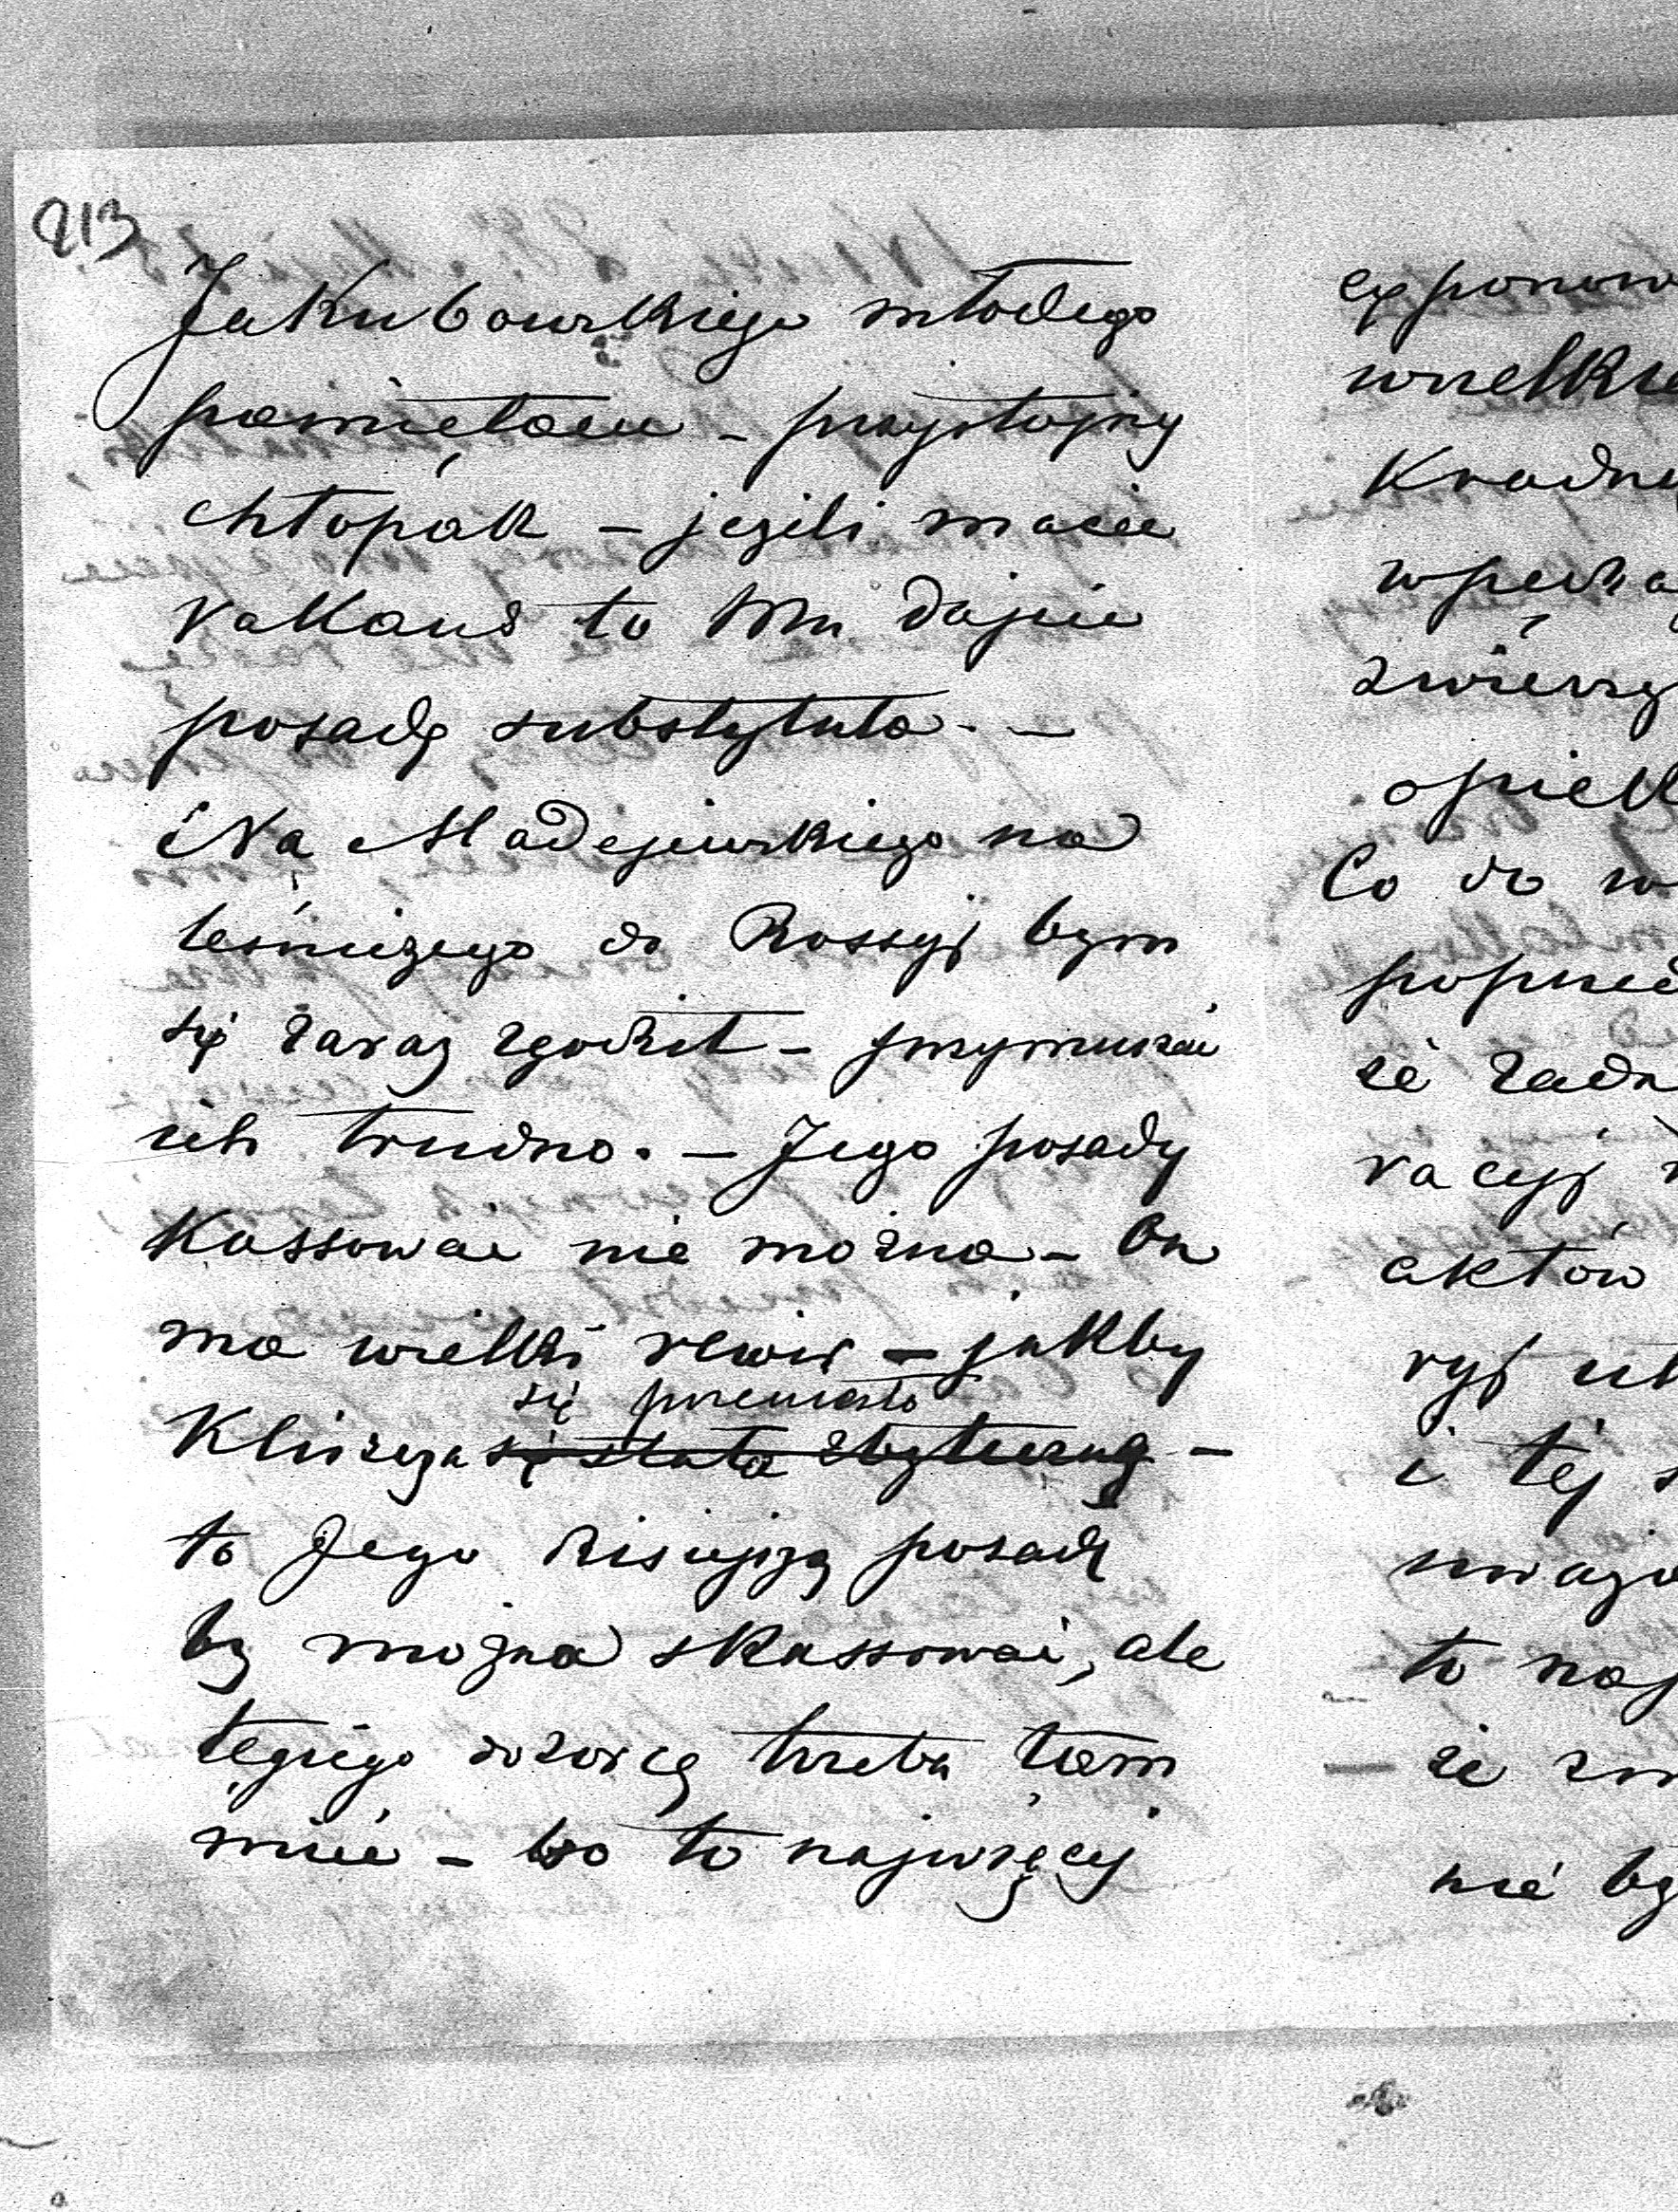 213
Jakubowskiego młodego
pamiętam - przystojny
chłopak - jeżeli macie
vakans to Mu dajcie
posadę substytuta. -
Na Madejewskiego na
leśniczego do Rossyj bym
się zaraz zgodził - przymuszać
ich trudno. - Jego posady
Kassować nie można - On
ma wielki rewir - jakby
się przeniosło
Klucza się stała zbyteczną -
to Jego dzisiejszą posadę
by można skassować, ale
tęgiego dozorcę trzeba tam
mieć - bo to najwięcej
exponow
wszelki
Kradni
zwierzy
opiek
Co do w
poprzed
że żadn
racyj
aktów
ryj
i tej s
uważa
to naj
- że zm
nie by